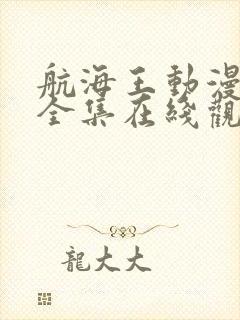 航海王動漫
全集在綫觀
龍大大